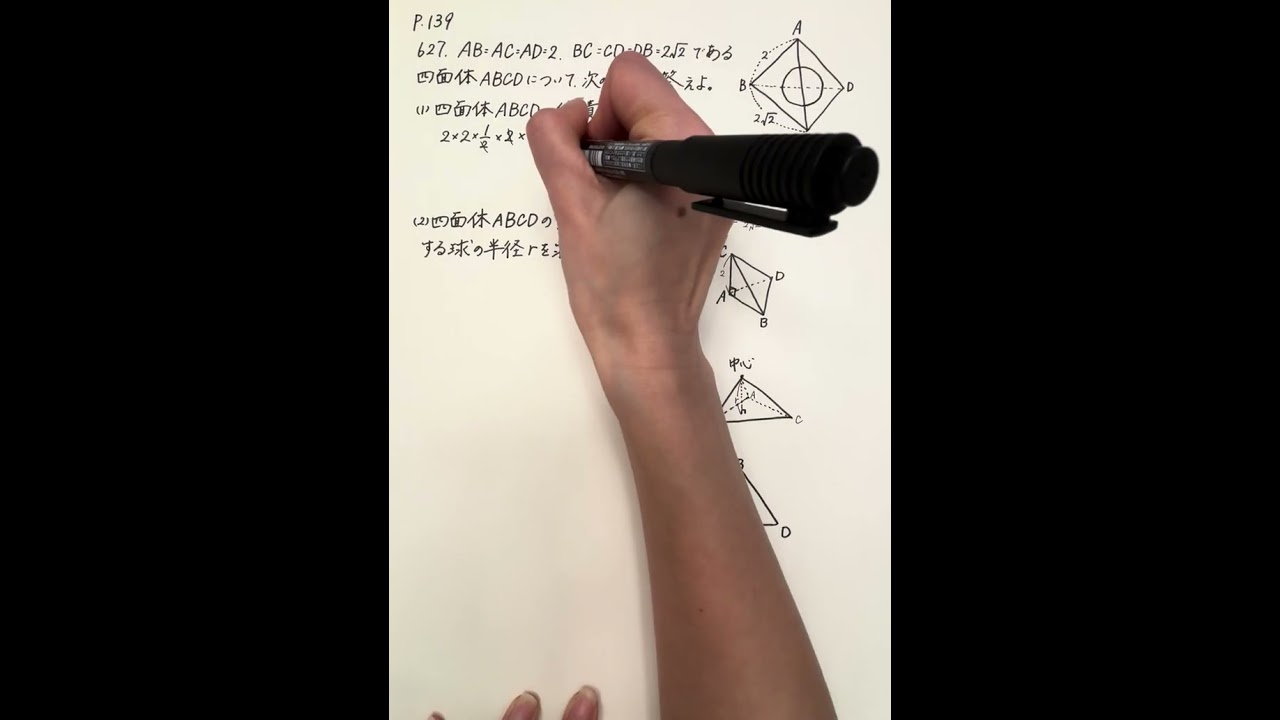 P.139
627. AB=AC=AD=2. BC=CD=DB=2√2である
四面体ABCDについて、次の 答えよ。
(1) 四面体ABCD
2×2×1/2×2×
(2) 四面体ABCDの
する球の半径rを
A
2
B
D
2√2
C
2
D
A
B
中心
r
A
h
C
B
D